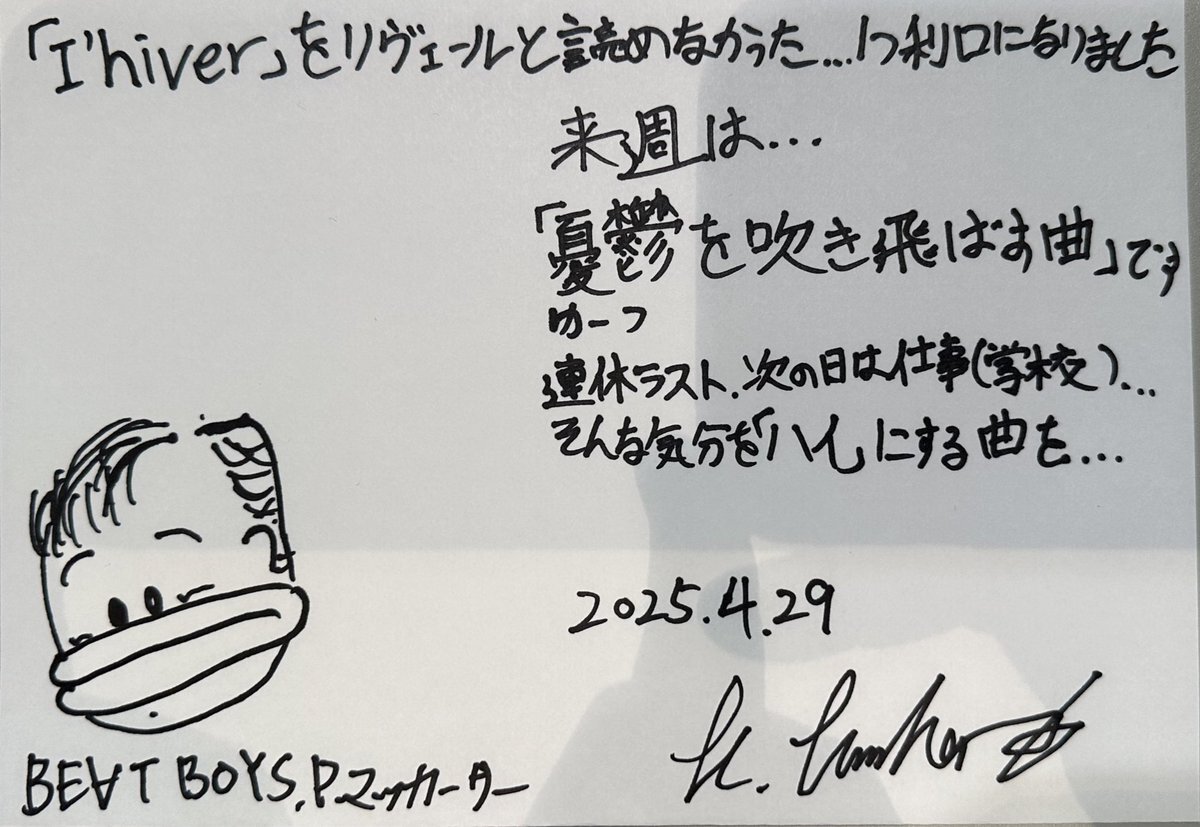 「I'hiver」をリヴェールと読めなかった…1つ利口になりました
来週は…
「憂鬱を吹き飛ばす曲」です
ゆーつ
連休ラスト.次の日は仕事(学校)…
そんな気分を「ハイ」にする曲を…
2025.4.29
BEAT BOYS.P.マッカーター